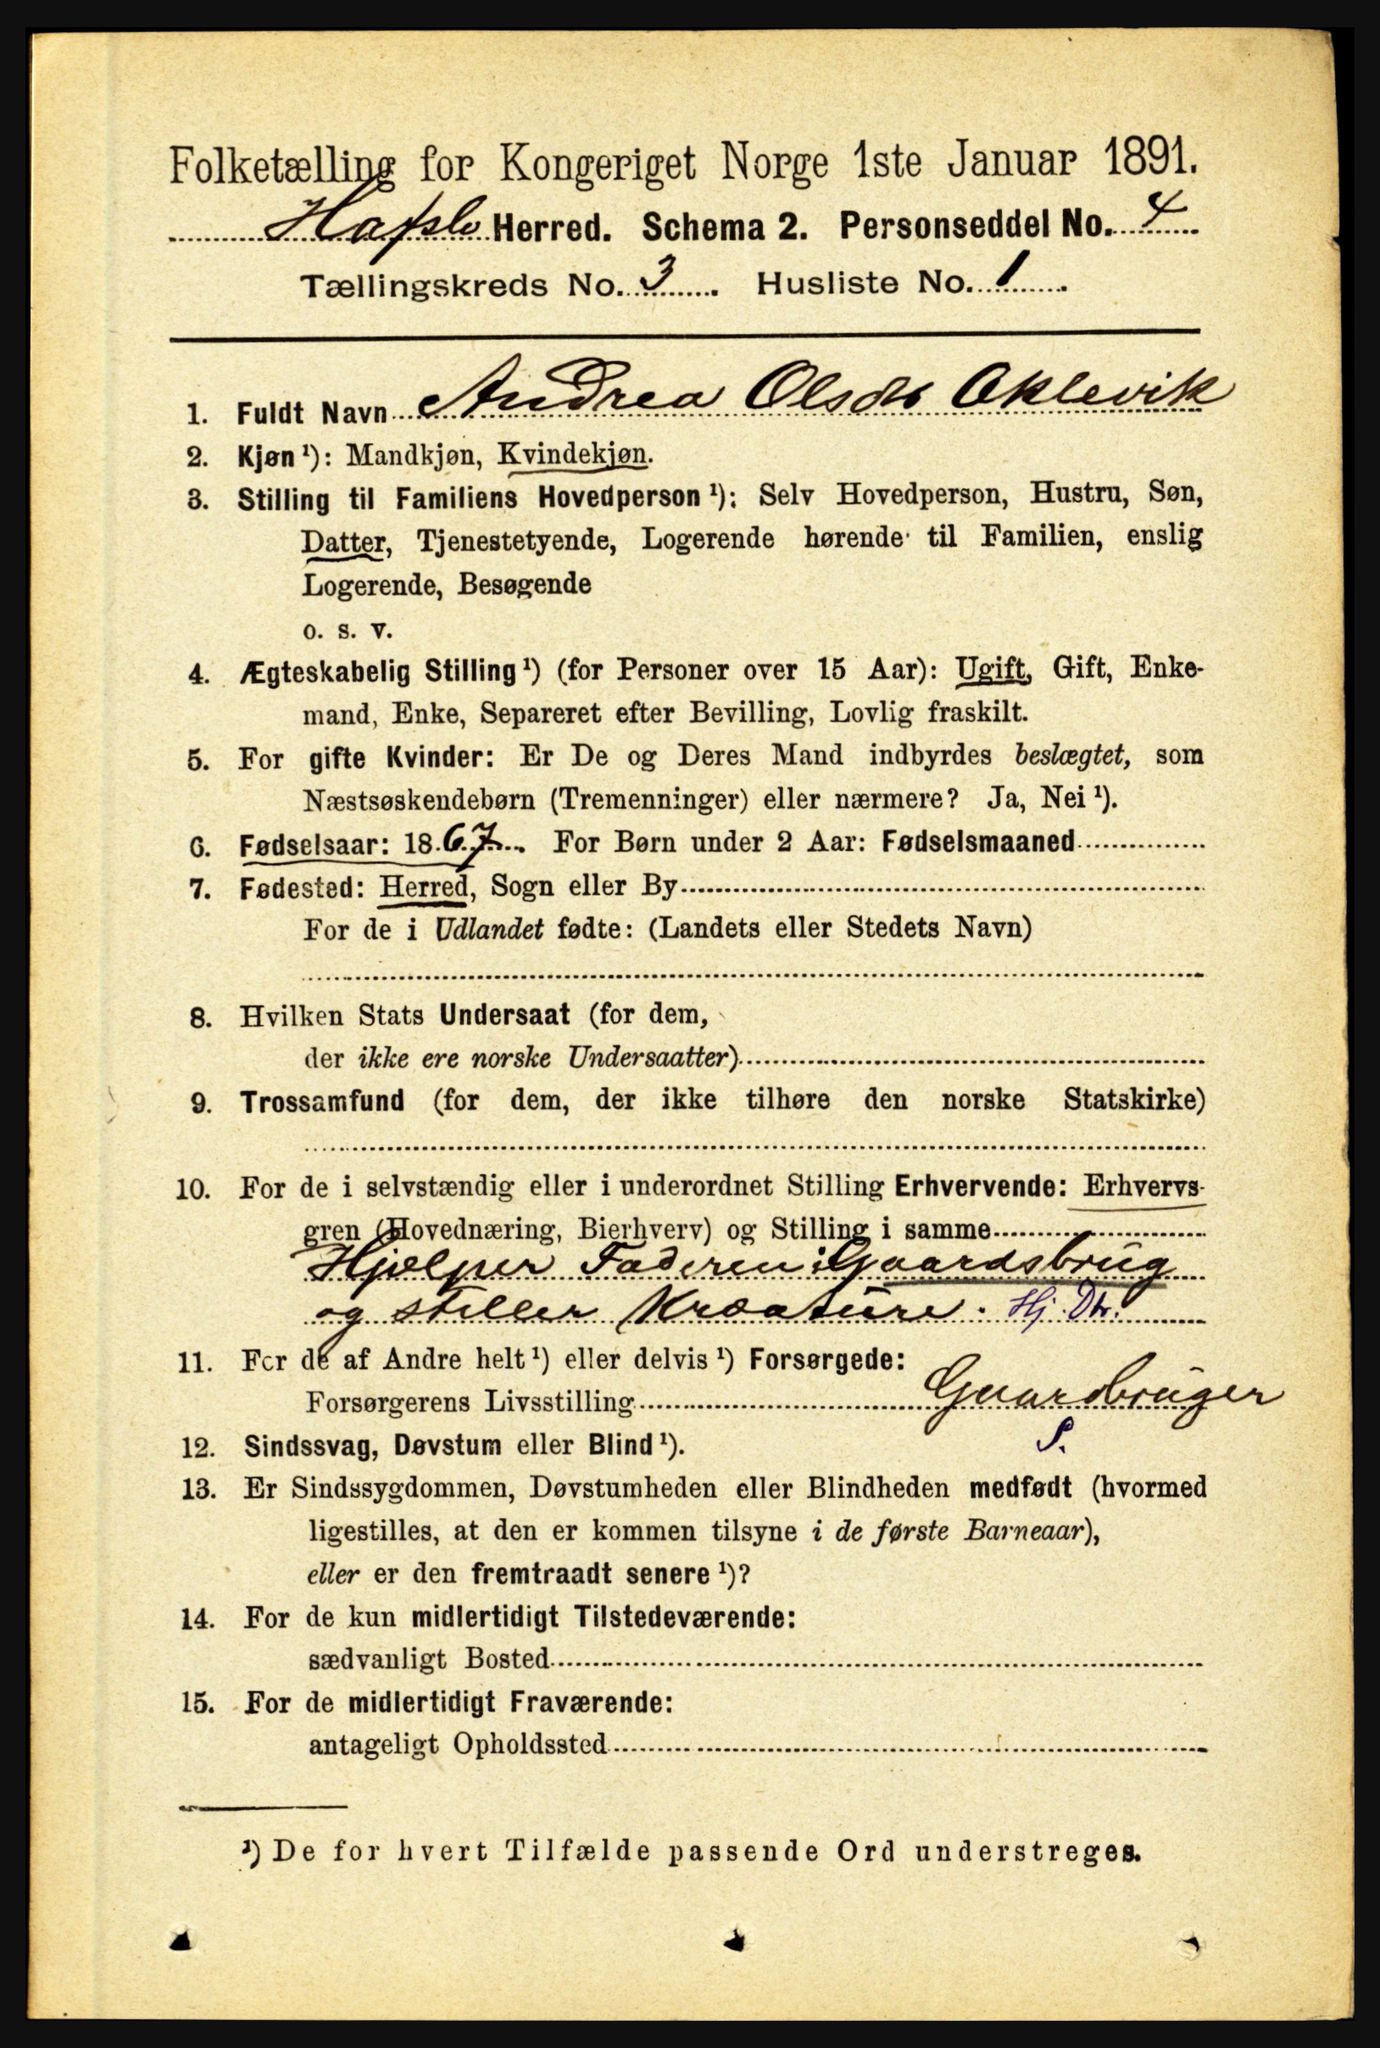 Folketælling for Kongeriget Norge 1ste Januar 1891.
Hafslo Herred. Schema 2. Personseddel No. 4
Tællingskreds No. 3. Husliste No. 1.
1. Fuldt Navn Andrea Olsdtr Oklevik
2. Kjøn ¹): Mandkjøn, Kvindekjøn.
3. Stilling til Familiens Hovedperson ¹): Selv Hovedperson, Hustru, Søn,
Datter, Tjenestetyende, Logerende hørende til Familien, enslig
Logerende, Besøgende
o. s. v.
4. Ægteskabelig Stilling ¹) (for Personer over 15 Aar): Ugift, Gift, Enke-
mand, Enke, Separeret efter Bevilling, Lovlig fraskilt.
5. For gifte Kvinder: Er De og Deres Mand indbyrdes beslægtet, som
Næstsøskendebørn (Tremenninger) eller nærmere? Ja, Nei ¹).
6. Fødselsaar: 1867. For Børn under 2 Aar: Fødselsmaaned
7. Fødested: Herred, Sogn eller By
For de i Udlandet fødte: (Landets eller Stedets Navn)
8. Hvilken Stats Undersaat (for dem,
der ikke ere norske Undersaatter)
9. Trossamfund (for dem, der ikke tilhøre den norske Statskirke)
10. For de i selvstændig eller i underordnet Stilling Erhvervende: Erhvervs-
gren (Hovednæring, Bierhverv) og Stilling i samme
Hjælper Faderen i Gaardsbrug
og steller Kreature. Hj. Dtr.
11. For de af Andre helt ¹) eller delvis ¹) Forsørgede:
Forsørgerens Livsstilling Gaardbruger
12. Sindssvag, Døvstum eller Blind ¹). S.
13. Er Sindssygdommen, Døvstumheden eller Blindheden medfødt (hvormed
ligestilles, at den er kommen tilsyne i de første Barneaar),
eller er den fremtraadt senere ¹)?
14. For de kun midlertidigt Tilstedeværende:
sædvanligt Bosted
15. For de midlertidigt Fraværende:
antageligt Opholdssted
¹) De for hvert Tilfælde passende Ord understreges.